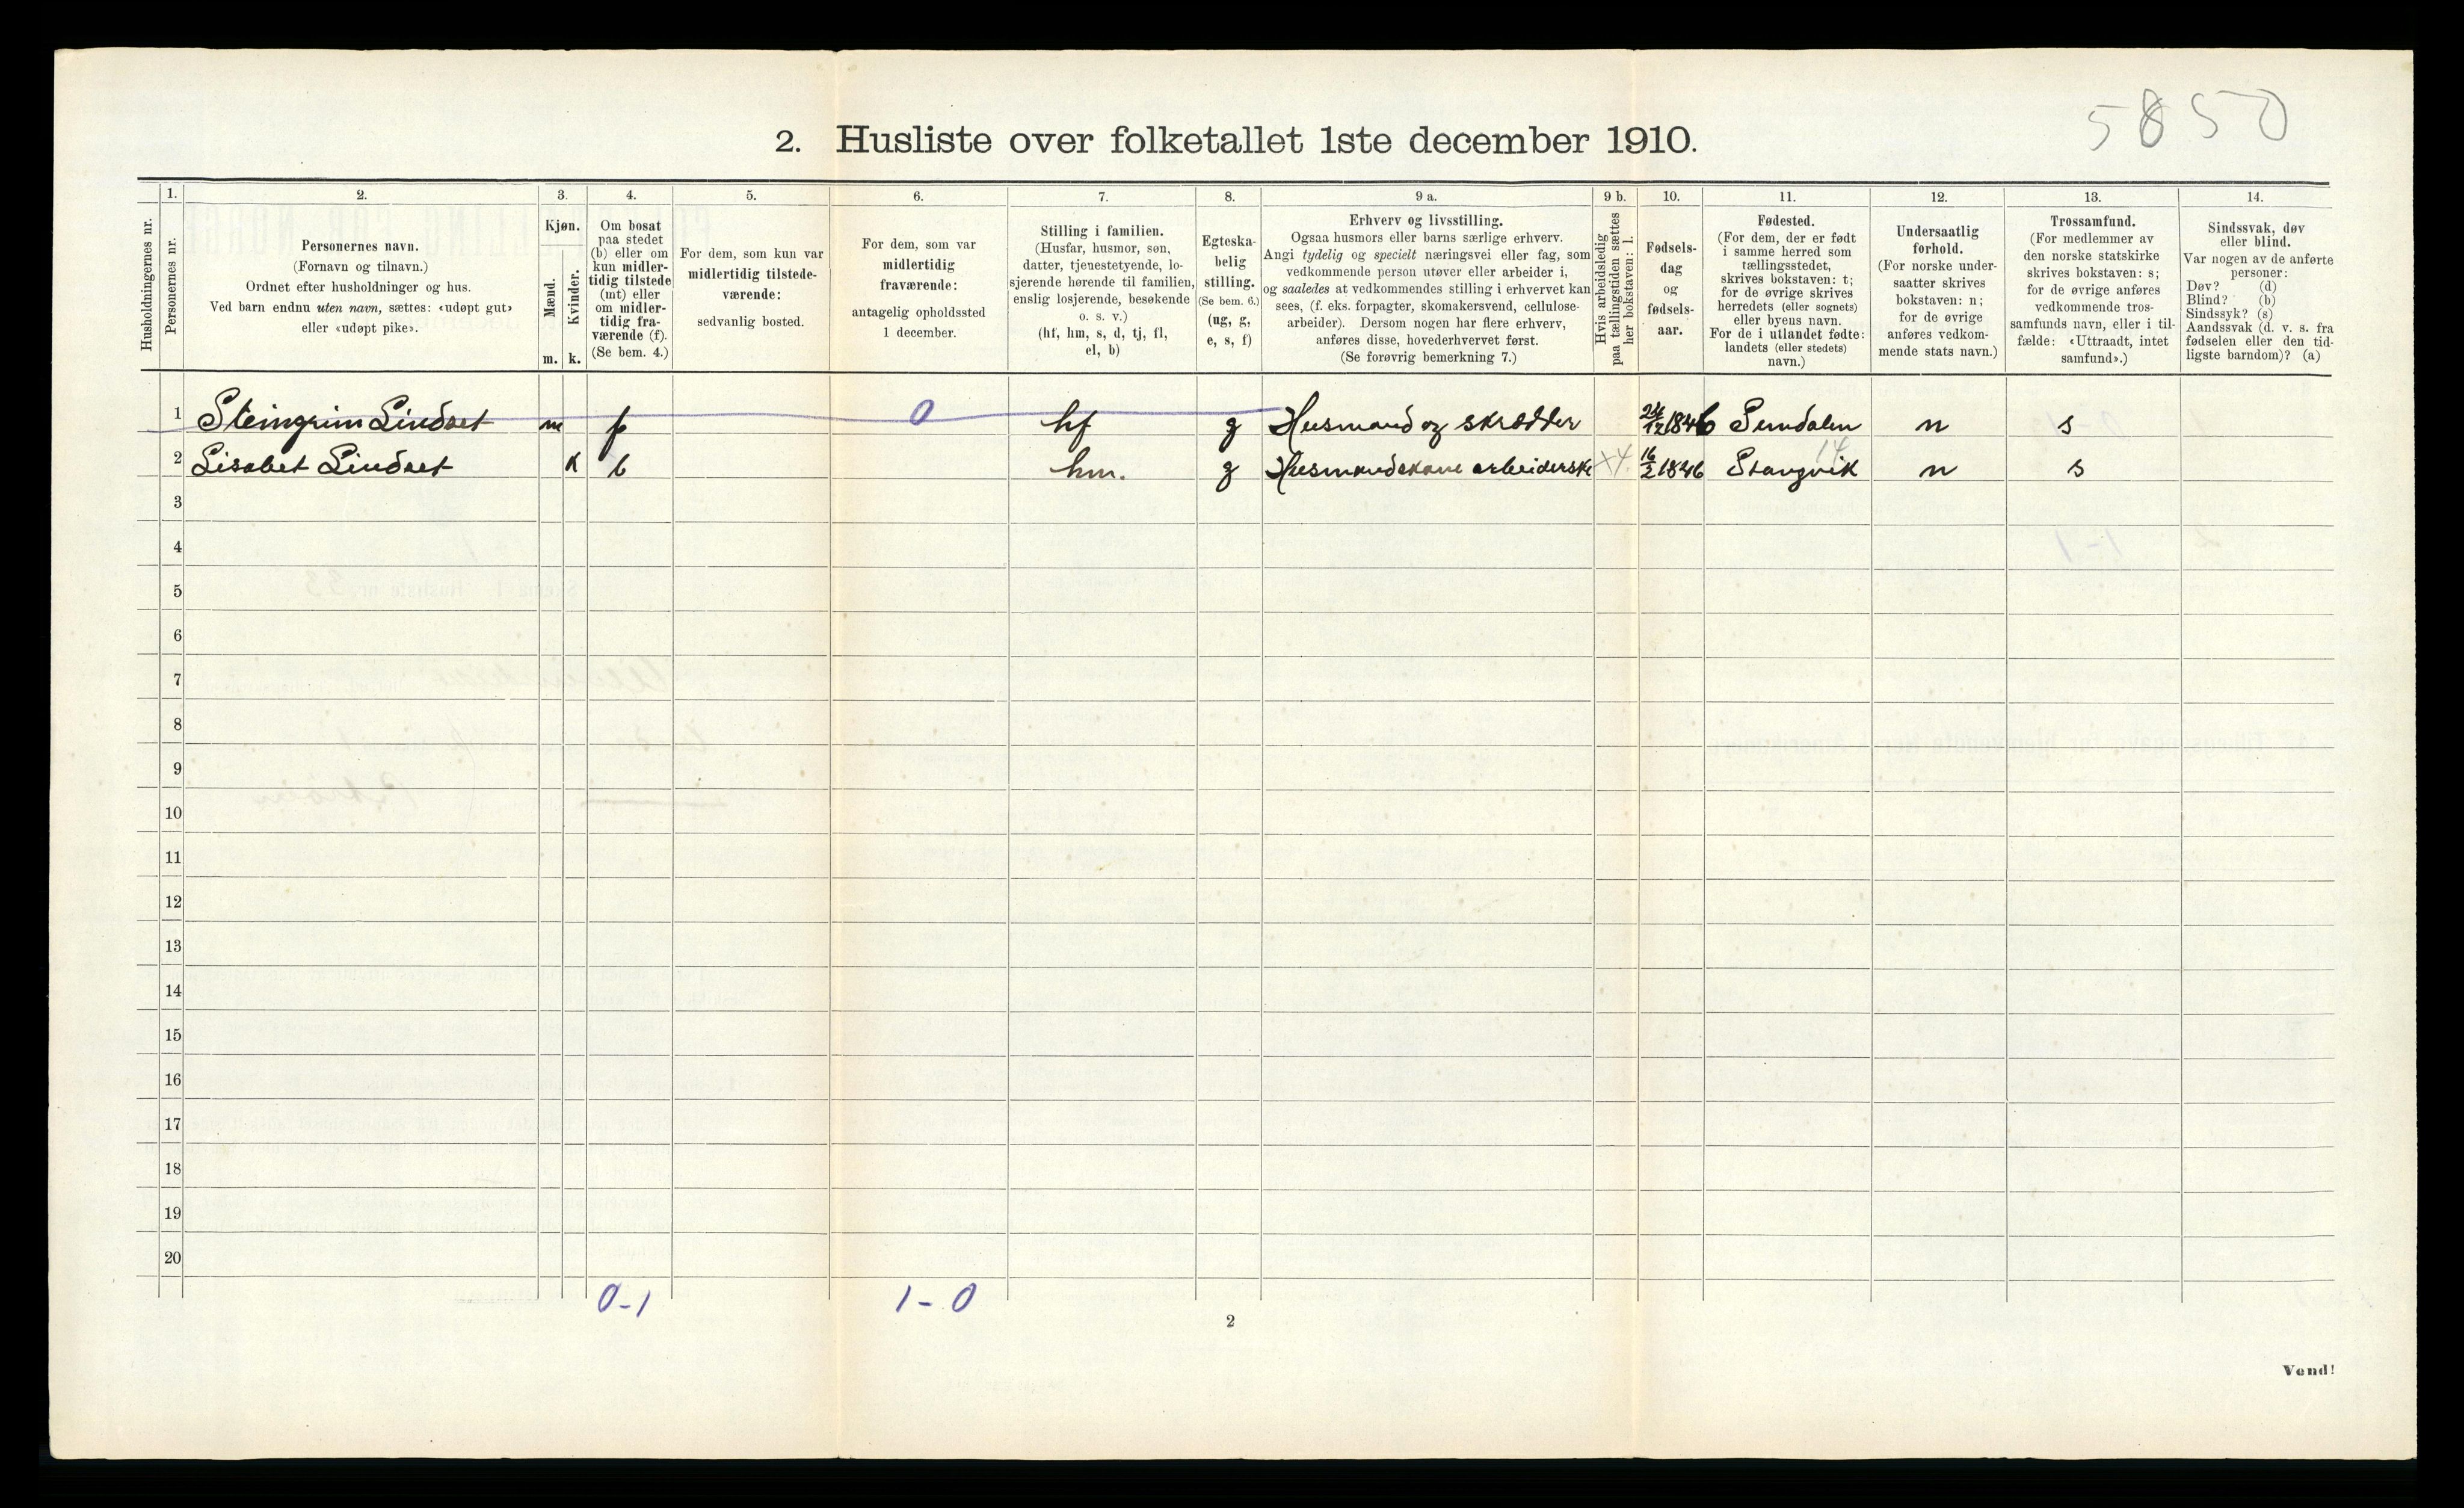 5850
2. Husliste over folketallet 1ste december 1910.
Husholdningernes nr.
1.
Personernes nr.
2.
Personernes navn.
(Fornavn og tilnavn.)
Ordnet efter husholdninger og hus.
Ved barn endnu uten navn, sættes: «udøpt gut»
eller «udøpt pike».
3.
Kjøn.
Mænd.
Kvinder.
m. k.
4.
Om bosat
paa stedet
(b) eller om
kun midler-
tidig tilstede
(mt) eller
om midler-
tidig fra-
værende (f).
(Se bem. 4.)
5.
For dem, som kun var
midlertidig tilstede-
værende:
sedvanlig bosted.
6.
For dem, som var
midlertidig
fraværende:
antagelig opholdssted
1 december.
7.
Stilling i familien.
(Husfar, husmor, søn,
datter, tjenestetyende, lo-
sjerende hørende til familien,
enslig losjerende, besøkende
o. s. v.)
(hf, hm, s, d, tj, fl,
el, b)
8.
Egteska-
belig
stilling.
(Se bem. 6.)
(ug, g,
e, s, f)
9 a.
Erhverv og livsstilling.
Ogsaa husmors eller barns særlige erhverv.
Angi tydelig og specielt næringsvei eller fag, som
vedkommende person utøver eller arbeider i,
og saaledes at vedkommendes stilling i erhvervet kan
sees, (f. eks. forpagter, skomakersvend, cellulose-
arbeider). Dersom nogen har flere erhverv,
anføres disse, hovederhvervet først.
(Se forøvrig bemerkning 7.)
9 b.
Hvis arbeidsledig
paa tællingstiden sættes
her bokstaven: l.
10.
Fødsels-
dag
og
fødsels-
aar.
11.
Fødested.
(For dem, der er født
i samme herred som
tællingsstedet,
skrives bokstaven: t;
for de øvrige skrives
herredets (eller sognets)
eller byens navn.
For de i utlandet fødte:
landets (eller stedets)
navn.)
12.
Undersaatlig
forhold.
(For norske under-
saatter skrives
bokstaven: n;
for de øvrige
anføres vedkom-
mende stats navn.)
13.
Trossamfund.
(For medlemmer av
den norske statskirke
skrives bokstaven: s;
for de øvrige anføres
vedkommende tros-
samfunds navn, eller i til-
fælde: «Uttraadt, intet
samfund».)
14.
Sindssvak, døv
eller blind.
Var nogen av de anførte
personer:
Døv? (d)
Blind? (b)
Sindssyk? (s)
Aandssvak (d. v. s. fra
fødselen eller den tid-
ligste barndom)? (a)
1 Steingrim Lindset m f 0 hf g Husmand og skrædder 12 1846 Sundalen n s
2 Lisabet Lindset k b hm. g Husmandskone arbeiderske x4. 16/2 1846 Stangvik 14 n s
3
4
5
6
7
8
9
10
11
12
13
14
15
16
17
18
19
20
0-1 1-0
2
Vend!